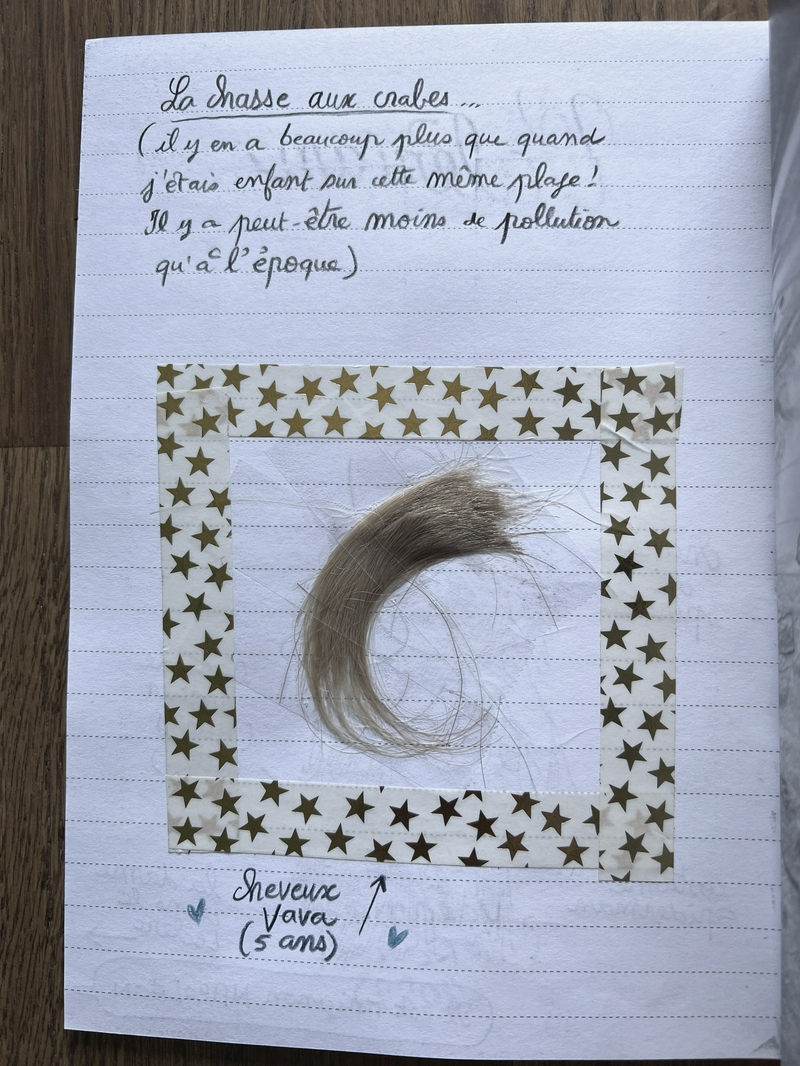 La chasse aux crabes...
(il y en a beaucoup plus que quand
j'étais enfant sur cette même plage !
Il y a peut-être moins de pollution
qu'à l'époque)
Cheveux
Vava
(5 ans)